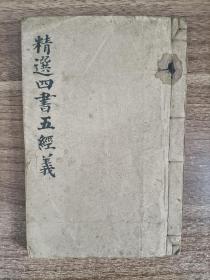 精選四書五經義